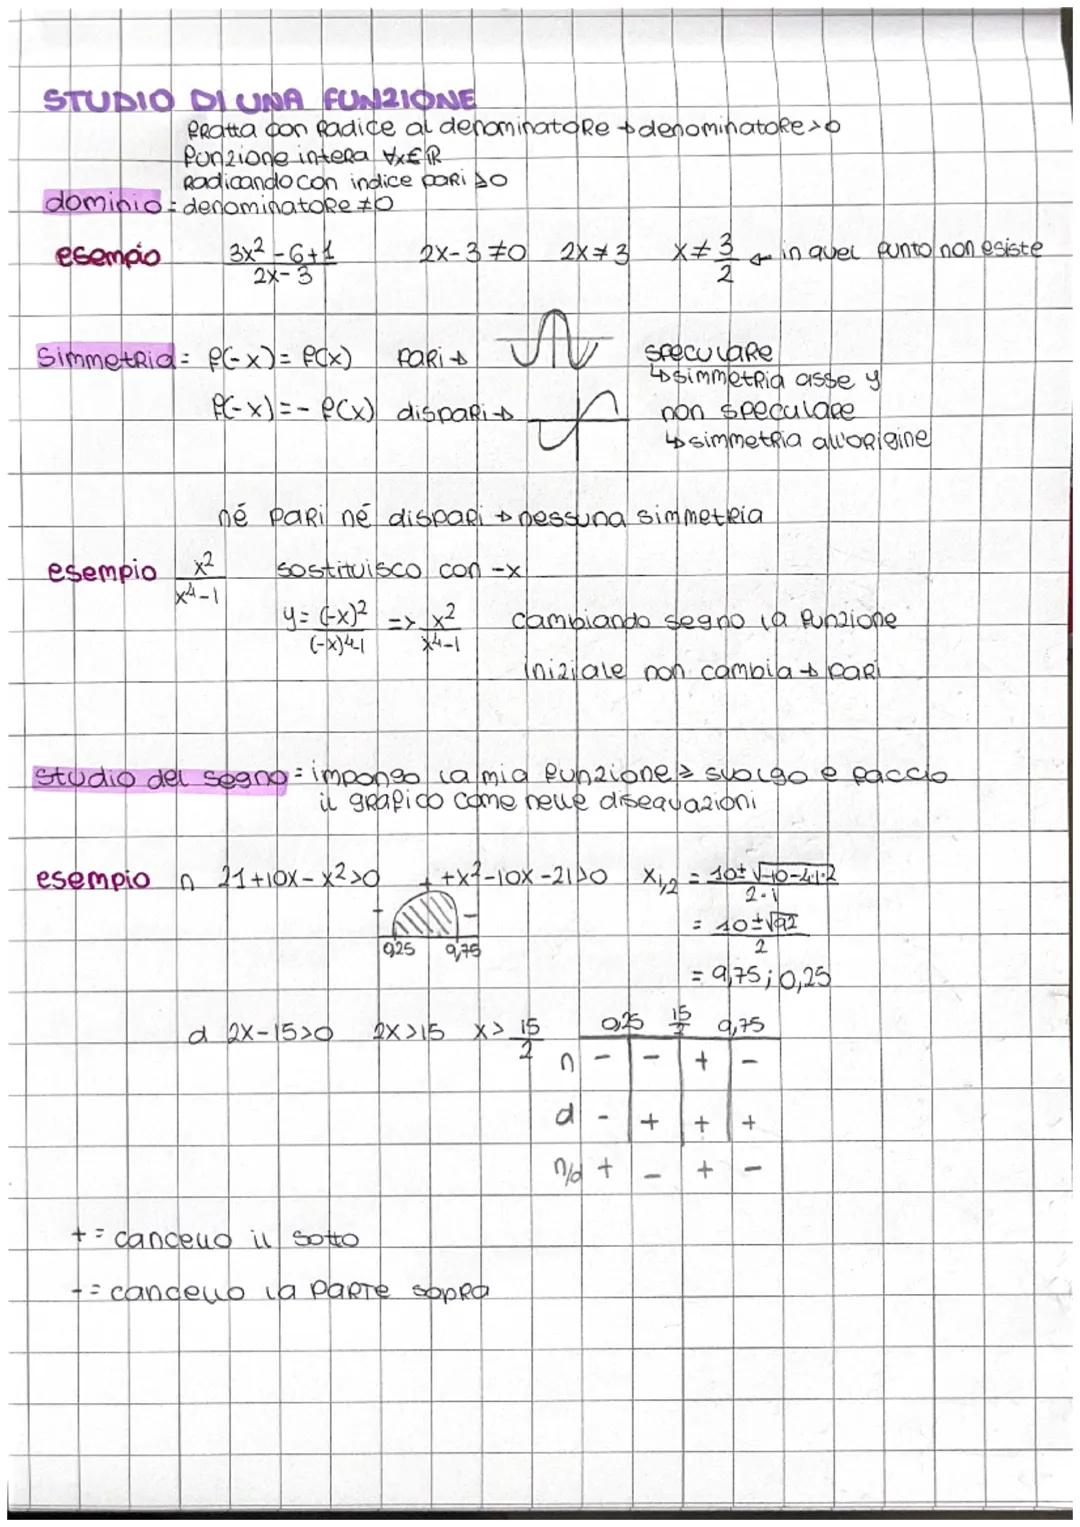 STUDIO DI UNA FUNZIONE
fratta con radice al denominatore → denominatore > 0
funzione intera ∀x∈ℝ
Radicando con indice pari ≥0
dominio = denominatore ≠0
esempio 3x²-6+1/2x-3 2x-3≠0 2x≠3 x≠3/2 ← in quel punto non esiste
Simmetria = f(-x) = f(x) pari → speculare
↳ simmetria asse y
f(-x) = -f(x) dispari → non speculare
↳ simmetria all'origine
né pari né dispari → nessuna simmetria
esempio x²/x⁴-1 sostituisco con -x
y = (-x)²/(-x)⁴-1 => x²/x⁴-1 cambiando segno la funzione
iniziale non cambia → pari
studio del segno = impongo la mia funzione ≥ svolgo e faccio
il grafico come nelle disequazioni
esempio n 21+10x-x²>0 ++x²-10x-21>0 x₁,₂ = 10±√-10-4·1·2/2·1
= 10±√92/2
- + -
0,25 9,75
= 9,75; 0,25
d 2x-15>0 2x>15 x>15/2
0,25 15/2 9,75
n - - + -
d - + + +
n/d + - + -
+ = cancello il sotto
- = cancello la parte sopra